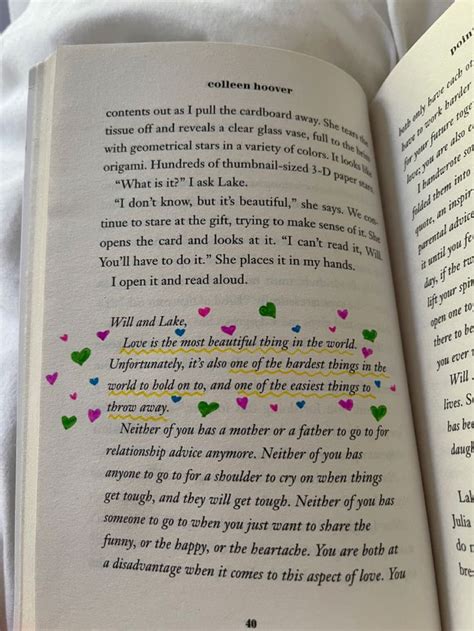 colleen hoover
contents out as I pull the cardboard away. She tears the
tissue off and reveals a clear glass vase, full to the brim
with geometrical stars in a variety of colors. It looks like
origami. Hundreds of thumbnail-sized 3-D paper stars.
“What is it?” I ask Lake.
“I don’t know, but it’s beautiful,” she says. We con-
tinue to stare at the gift, trying to make sense of it. She
opens the card and looks at it. “I can’t read it, Will.
You’ll have to do it.” She places it in my hands.
I open it and read aloud.
Will and Lake,
Love is the most beautiful thing in the world.
Unfortunately, it’s also one of the hardest things in the
world to hold on to, and one of the easiest things to
throw away.
Neither of you has a mother or a father to go to for
relationship advice anymore. Neither of you has
anyone to go to for a shoulder to cry on when things
get tough, and they will get tough. Neither of you has
someone to go to when you just want to share the
funny, or the happy, or the heartache. You are both at
a disadvantage when it comes to this aspect of love. You
40
poin
both only have each ot
to work harder
for your future toge
love; you are also
I handwrote som
folded them into
quote, an inspir
parental advice
it until you fe
day, if the
lift your spir
open one to
there to be
you ever
Will
lives. S
been
daug
Lak
Julia
do n
bre